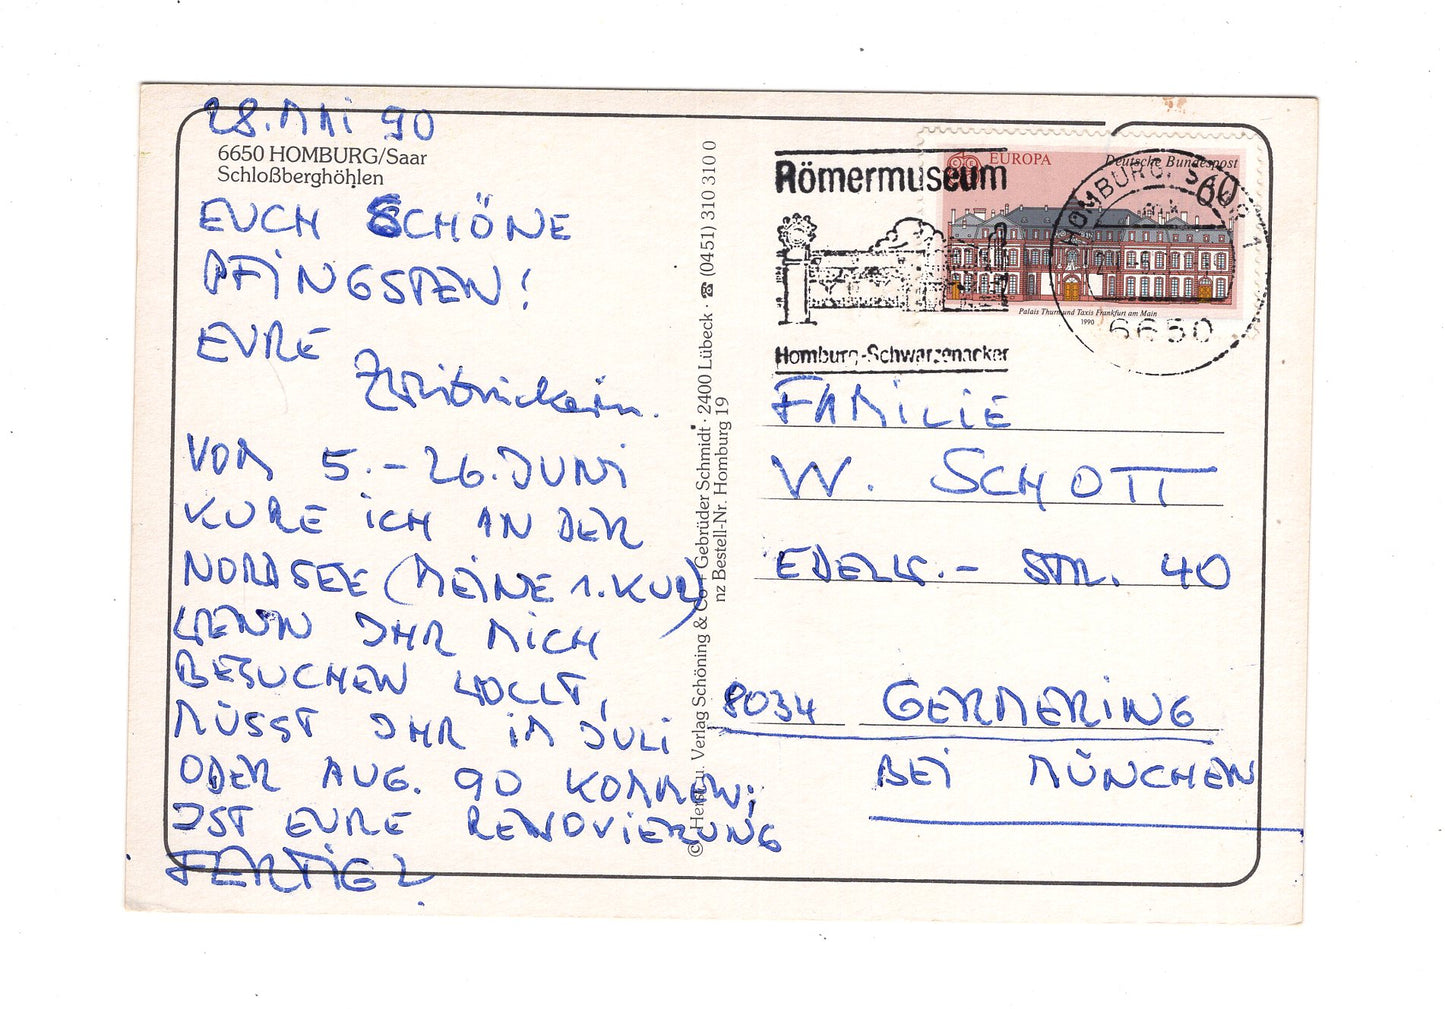 28. MAI 90
6650 HOMBURG/Saar
Schloßberghöhlen
EUCH SCHÖNE
PFINGSTEN!
EURE
Zweibrückerin.
VOM 5.-26. JUNI
KURE ICH AN DER
NORDSEE (MEINE 1. KUR)
WENN IHR MICH
BESUCHEN WOLLT,
MÜSST IHR IM JULI
ODER AUG. 90 KOMMEN;
IST EURE RENOVIERUNG
FERTIG?
© Herst. u. Verlag Schöning & Co + Gebrüder Schmidt · 2400 Lübeck · ☎ (0451) 310 310 0
nz Bestell-Nr. Homburg 19
Römermuseum
Homburg-Schwarzenacker
EUROPA Deutsche Bundespost
60
Palais Thurn und Taxis Frankfurt am Main
1990
HOMBURG, SAAR 1
6650
FAMILIE
W. SCHOTT
STR. 40
8034 GERMERING
BEI MÜNCHEN